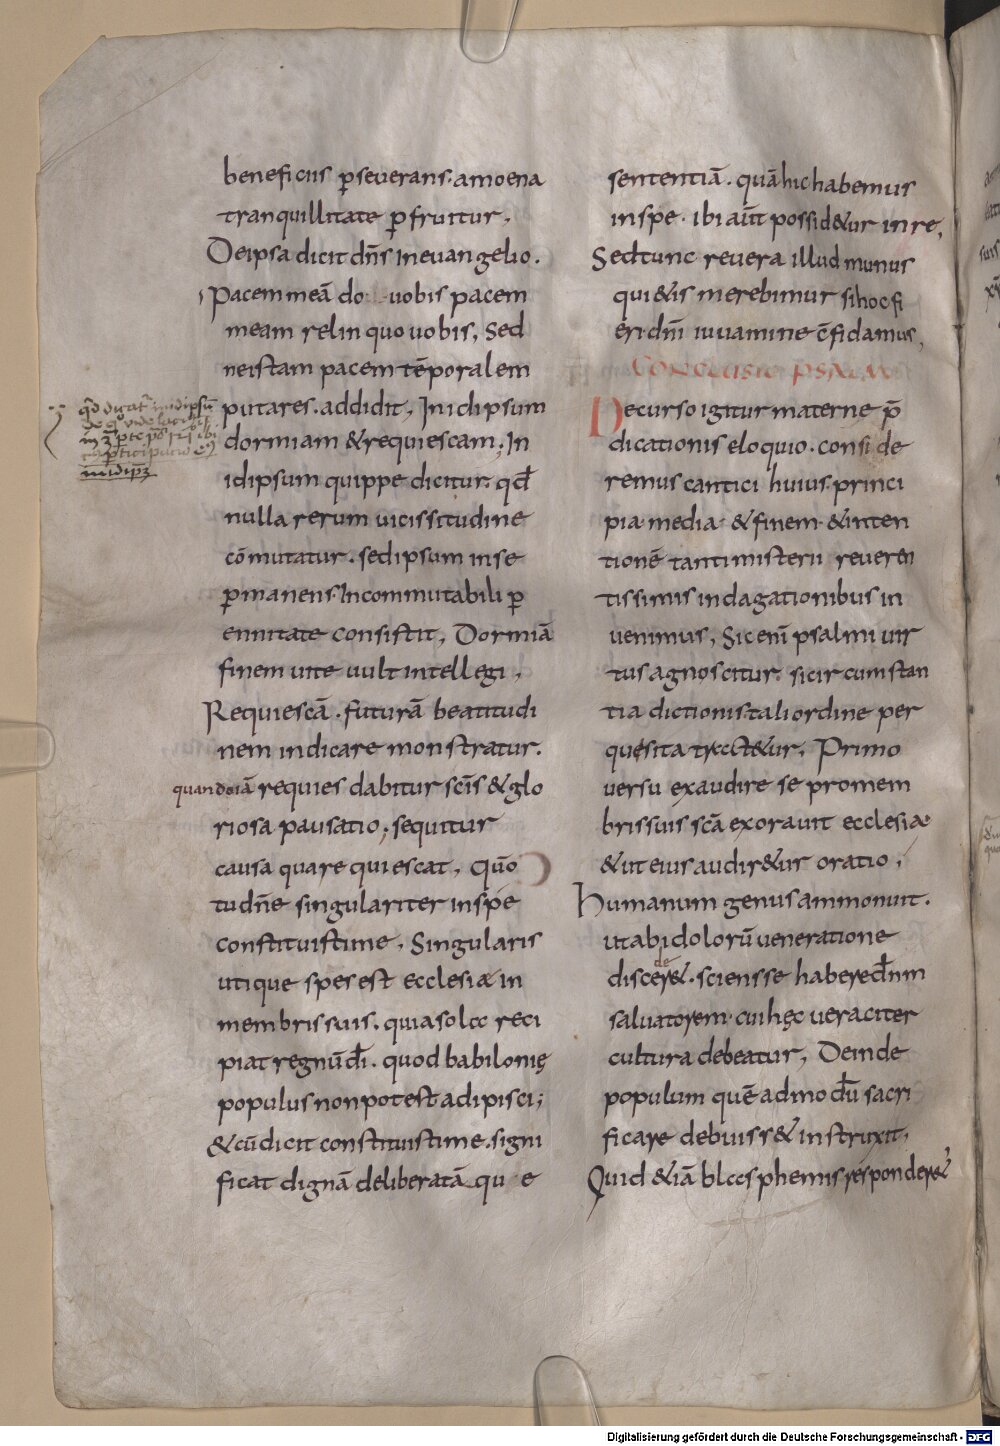 beneficiis p̲seuerans. amoena
tranquillitate p̲fruitur,
De ipsa dicit dn̄s in euangelio.
Pacem meā do uobis pacem
meam relinquo uobis, Sed
ne istam pacem tēporalem
putares. addidit, In idipsum
dormiam & requiescam, In
idipsum quippe dicitur. qđ
nulla rerum uicissitudine
cōmutatur. sed ipsum in se
p̲manens. Incommutabili p̲
ennitate consistit, Dormiā
finem uite uult intellegi,
Requiescā. futurā beatitudi
nem indicare monstratur.
quando iā requies dabitur sc̄is & glo
riosa pausatio; sequitur
causa quare quiescat, Qūo
tu dn̄e singulariter in spe
constituisti me, Singularis
utique spes est ecclesiæ in
membris suis. quia sola reci
piat regnū dī. quod babilonię
populus non potest adipisci;
& cū dicit constituisti me. signi
ficat dignā deliberatā que
sententiā. quā hic habemus
in spe. ibi aūt possid&ur in re,
Sed tunc reuera illud munus
qui&is merebimur si hoc fi
eri dn̄i iuuamine c̄fidamus,
CONCLUSIO PSALMI
Decurso igitur materne p̄
dicationis eloquio. conside
remus cantici huius. princi
pia media & finem. & inten
tionē tanti misterii reueren
tissimis indagationibus in
uenimus, Sic enī psalmi uir
tus agnoscitur. si circumstan
tia dictionis. tali ordine per
quesita tract&ur, Primo
uersu exaudire se pro mem
bris suis scā exorauit ecclesia
& ut eius audir&ur oratio,
Humanum genus ammonuit.
ut ab idolorū ueneratione
de
discer&. sciens se habere dn̄m
saluatorem. cui hęc ueraciter
cultura debeatur, Deinde
populum quē admodū sacri
ficare debuiss& instruxit,
Quid &iā blasphemis responder&
Digitalisierung gefördert durch die Deutsche Forschungsgemeinschaft - DFG